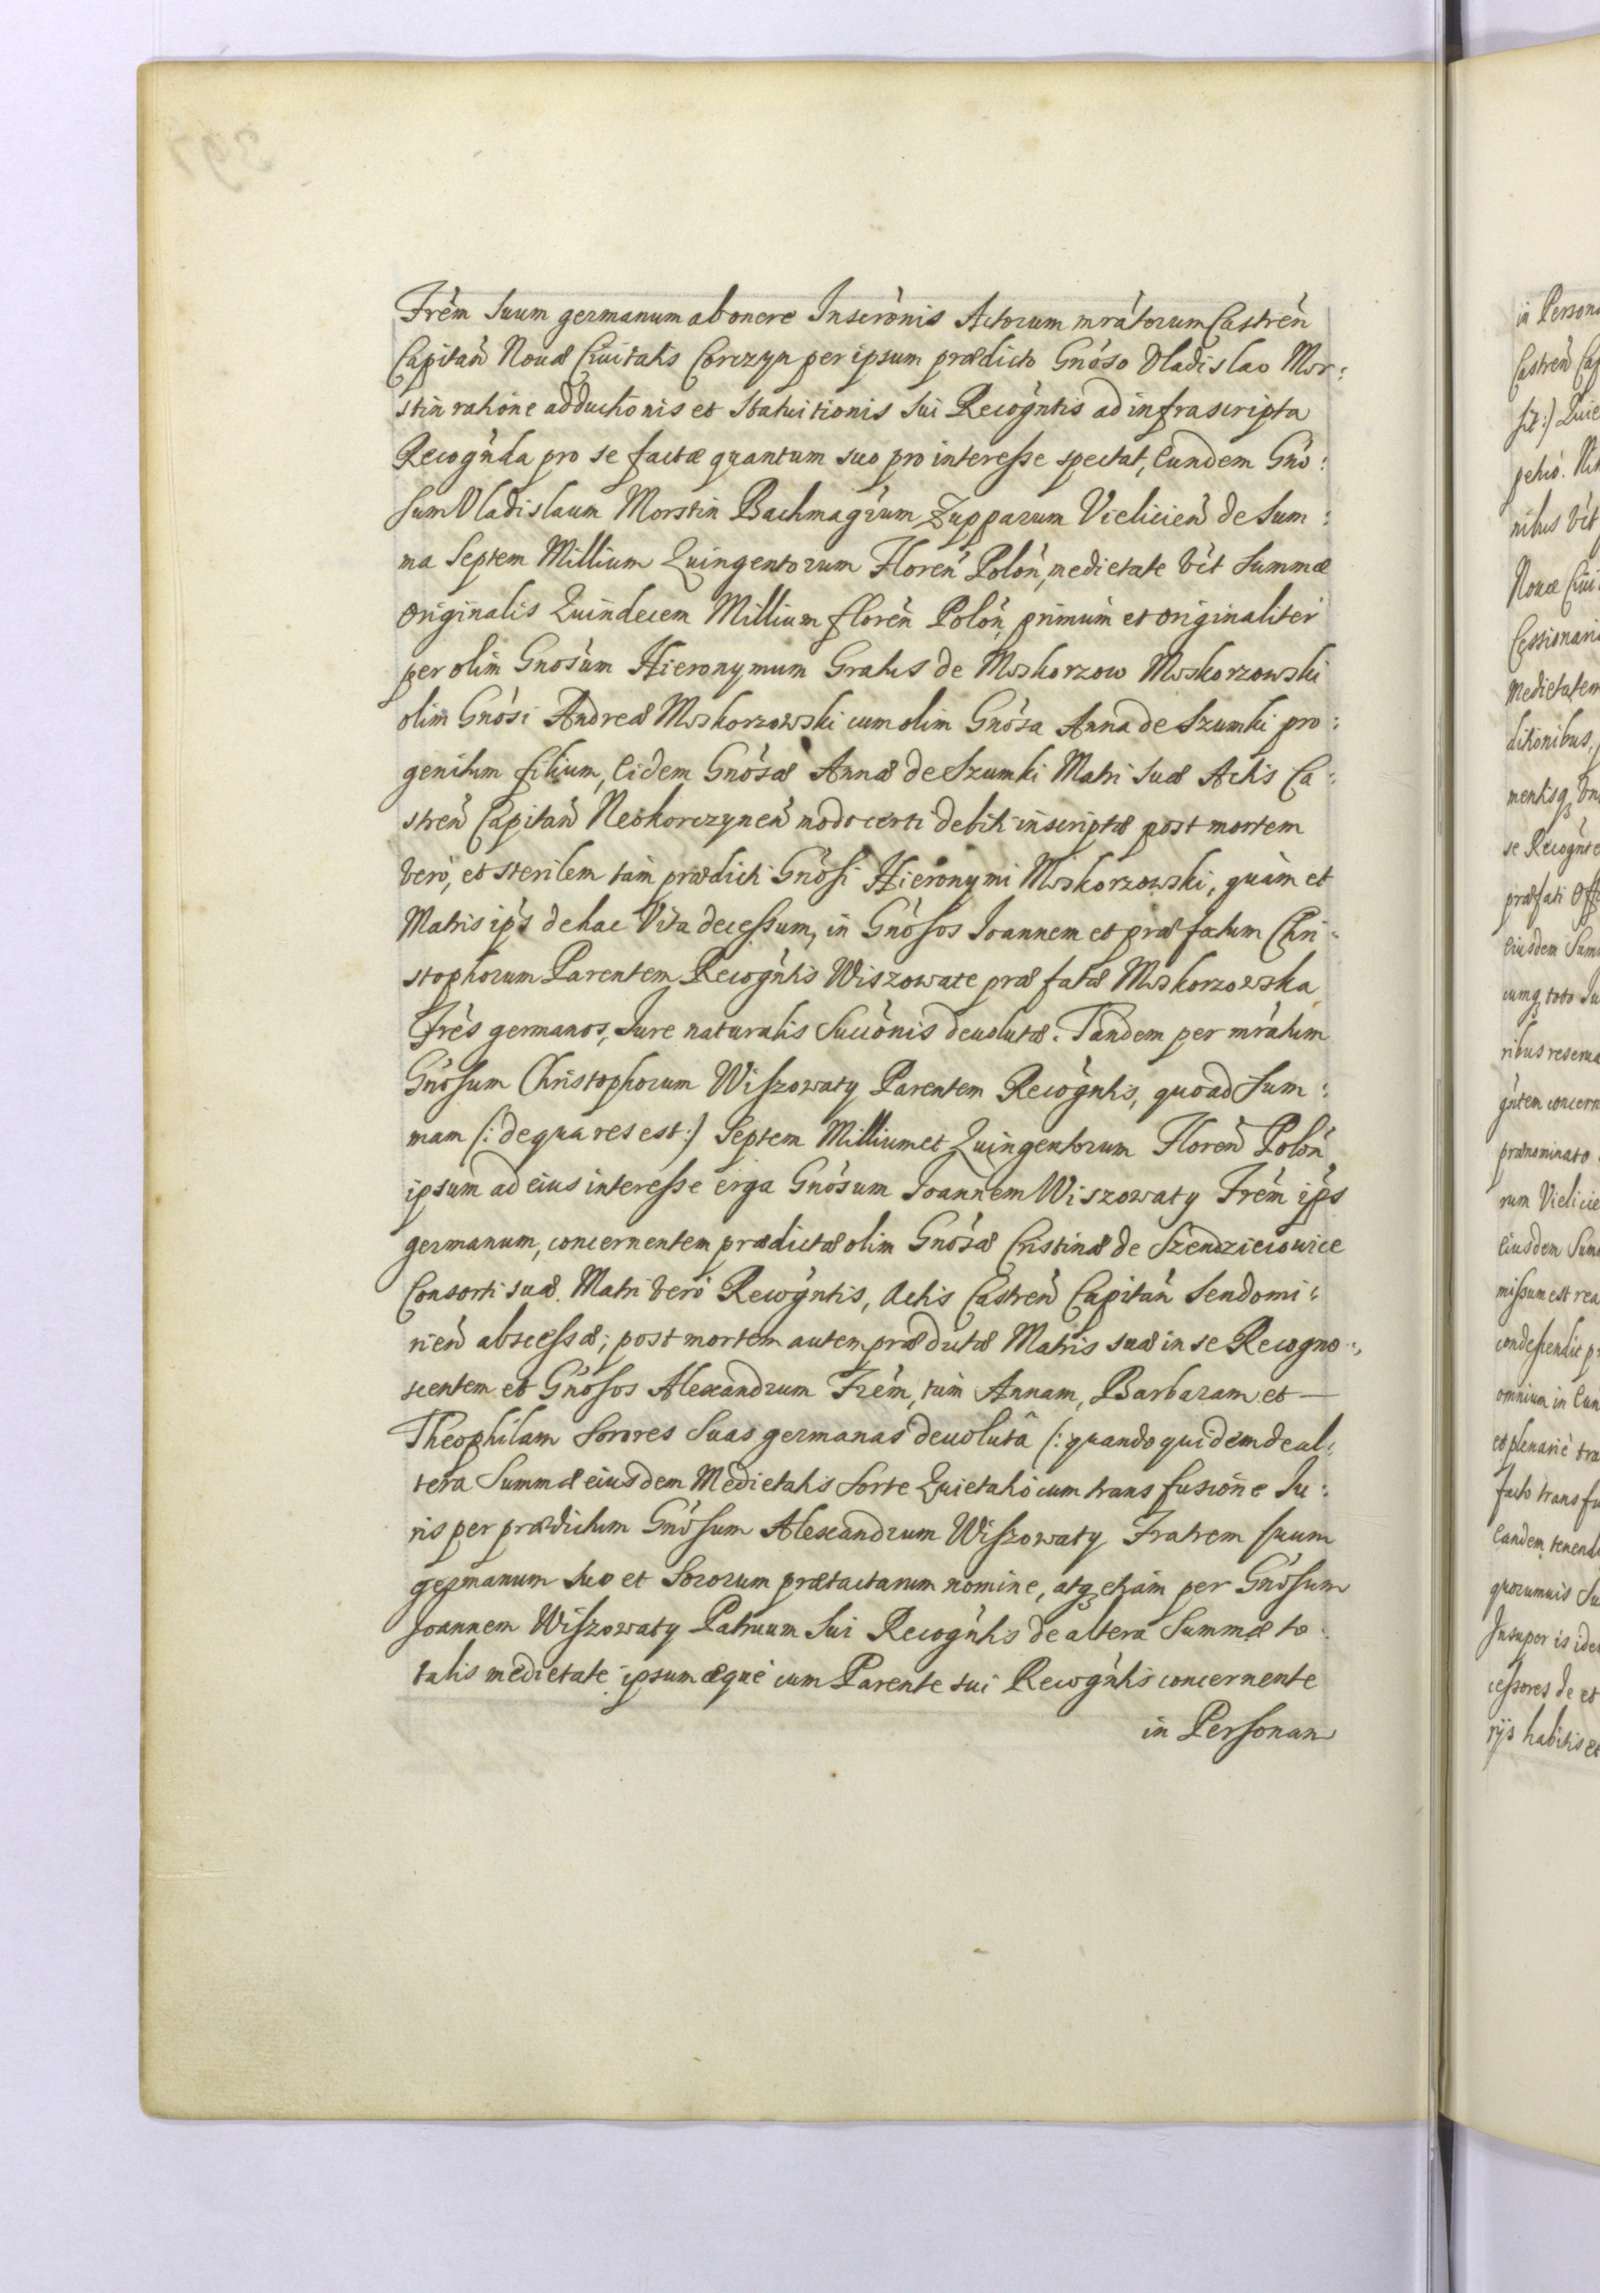 Frem suum germanum ab onere Inscronis Actorum mratorum Castren
Capitan Nouæ Ciuitatis Corczyn per ipsum prædicto Gnoso Vladislao Mor:
stin ratione adductionis et Statuitionis sui Recogntis ad infrascripta
Recognda pro se factæ quantum suo pro interesse spectat, Eundem Gno:
sum Vladislaum Morstin Bachmagrum Zupparum Vielicien de Sum:
ma Septem Millium Quingentorum Floren Polon, medietate vct Summæ
Originalis Quindecem Millium floren Polon, primum et originaliter
per olim Gnosum Hieronymum Gratus de Moskorzow Moskorzowski
olim Gnosi Andreæ Moskorzowski cum olim Gnosa Anna de Szumki pro:
genitum filium, Eidem Gnosæ Annæ de Szumki Matri suæ Actis Ca:
stren Capitan Neokorczynen modo certi debiti inscriptæ post mortem
vero, et sterilem tam prædicti Gnosi Hieronymi Moskorzowski, quam et
Matris ips de hac Vita decessum, in Gnosos Joannem et præfatum Chri:
stophorum Parentem Recogntis Wiszowate præfatæ Moskorzowska
Fres germanos, Jure naturalis Succonis deuolutæ. Tandem per mratum
Gnosum Christophorum Wiszowaty Parentem Recogntis, quoad Sum:
mam (: de qua res est :) Septem Millium et Quingentorum Floren Polon
ipsum ad eius interesse erga Gnosum Joannem Wiszowaty Frem ips
germanum, concernentem prædictæ olim Gnosæ Cristinæ de Szendzieiowice
Consorti suæ Matri vero Recogntis, Actis Castren Capitan Sendomi:
rien abscessæ; post mortem autem prædictæ Matris suæ in se Recogno:
scentem et Gnosos Alexandrum Frem, tum Annam, Barbaram et —
Theophilam Sorores Suas germanas deuoluta (: quandoquidem de al:
tera Summæ eiusdem Medietatis Sorte Quietatio cum transfusione Ju:
ris per prædictum Gnosum Alexandrum Wiszowaty Fratrem suum
germanum suo et Sororum prætactarum nomine, atq3 etiam per Gnosum
Joannem Wiszowaty Patruum sui Recogntis de altera Summæ to:
talis medietate ipsum æque cum Parente sui Recogntis concernente
in Personam
in Persona
Castren Cap
nibus vct
Nouæ Ciui
Cessionari
Medietatem
ditionibus,
se Recognte
præfati Off
Eiusdem Sum
cumq3 toto Ju
ribus reserua
gntem concern
prænominato
rum Vielicie
Eiusdem Sum
missum est rea
condescendit p
omnium in Eun
et plenarie tra
facto transfu
Eandem tenend
quorumuis Su
Insuper is ide
cessores de et
rijs habitis et